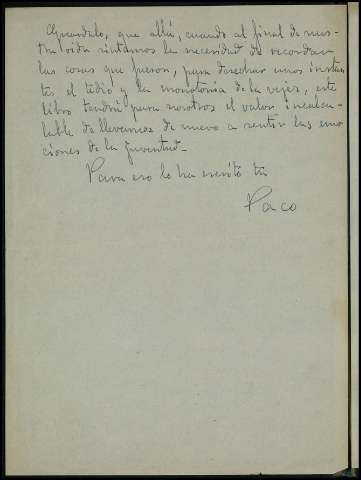 Guardalo, que allá, cuando al final de nues-
tra vida sintamos la necesidad de recordar
las cosas que fueron, para desechar unos instan-
tes el tedio y la monotonia de la vejez, este
libro tendrá para nosotros el valor incalcu-
lable de llevarnos de nuevo a sentir las emo-
ciones de la juventud.
Para eso lo ha escrito tu
Paco